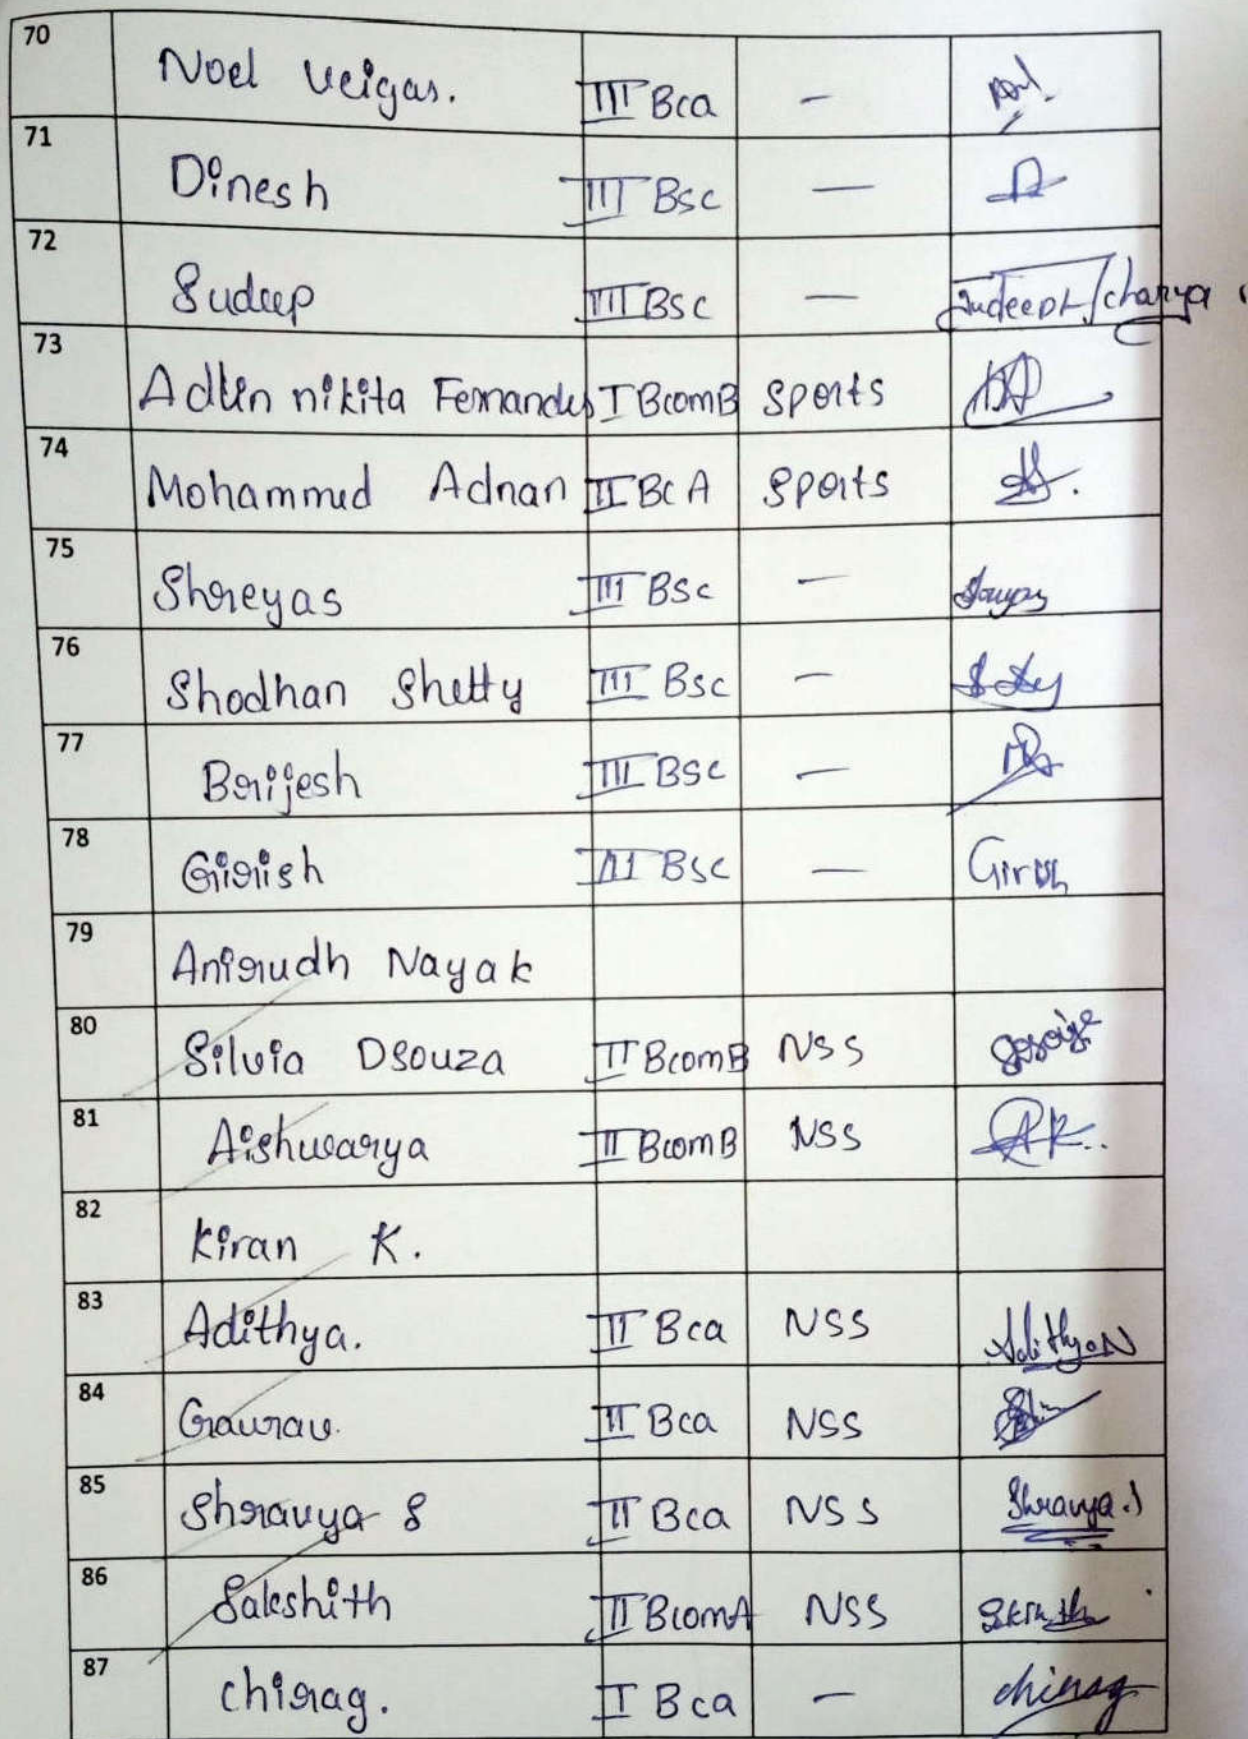 70 Noel Veigas. III Bca –
71 Dinesh III Bsc —
72 Sudeep III Bsc —
73 Adlin nikita Fernandes I BcomB Sports
74 Mohammed Adnan II BcA Sports
75 Shreyas III BSc –
76 Shodhan Shetty III Bsc –
77 Brijesh III BSc —
78 Girish III BSc — Girish
79 Anirudh Nayak
80 Silvia Dsouza II BcomB NSS
81 Aishwarya II BcomB NSS AK..
82 Kiran K.
83 Adithya. II Bca NSS Adithya N
84 Gaurav. II Bca NSS
85 Shravya S II Bca NSS Shravya.S
86 Sakshith II BcomA NSS
87 chirag. I Bca – chirag